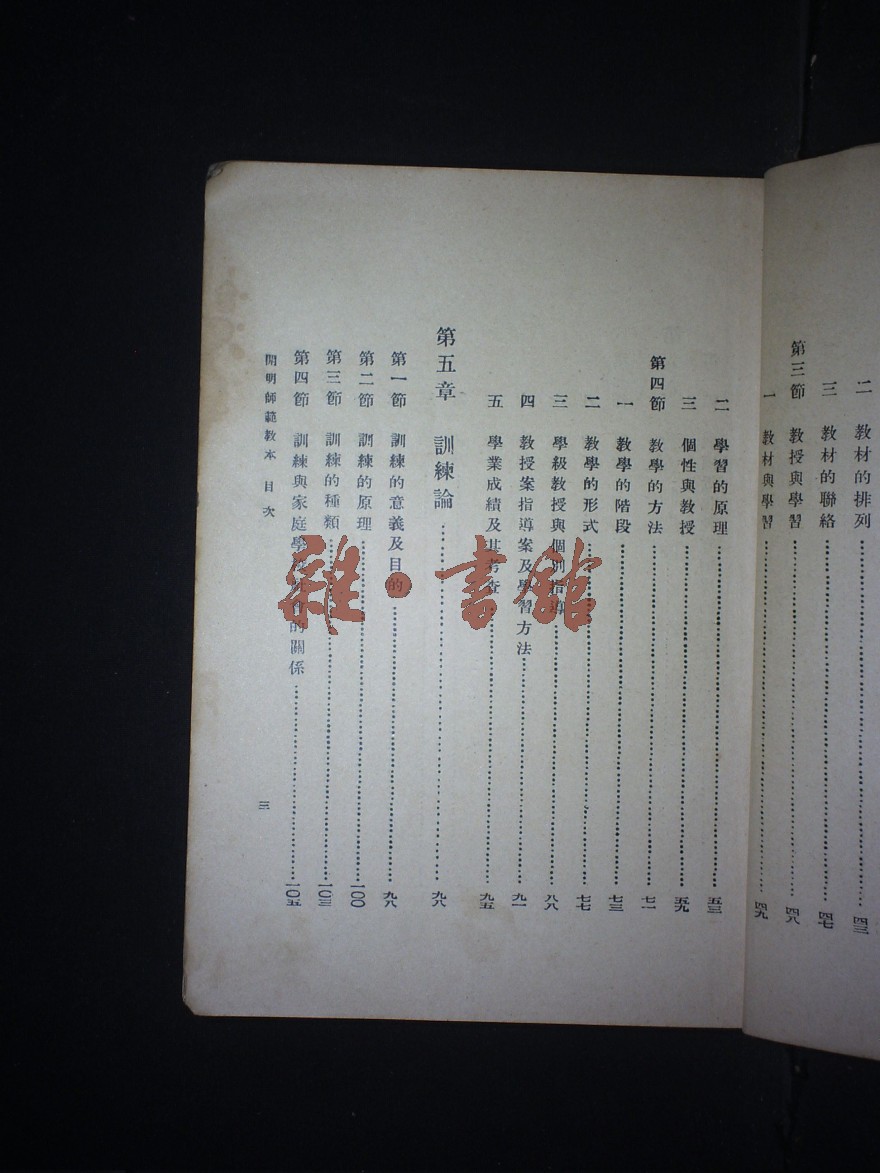 二 教材的排列……四三
三 教材的聯絡……四七
第三節 教授與學習……四八
一 教材與學習……四九
二 學習的原理……五三
三 個性與教授……五九
第四節 教學的方法……七一
一 教學的階段……七三
二 教學的形式……七七
三 學級教授與個別指導……八八
四 教授案指導案及學習方法……九一
五 學業成績及其考查……九五
第五章 訓練論……九八
第一節 訓練的意義及目的……九八
第二節 訓練的原理……一〇〇
第三節 訓練的種類……一〇三
第四節 訓練與家庭學校社會的關係……一〇五
開明師範教本 目次 三
雜·書館